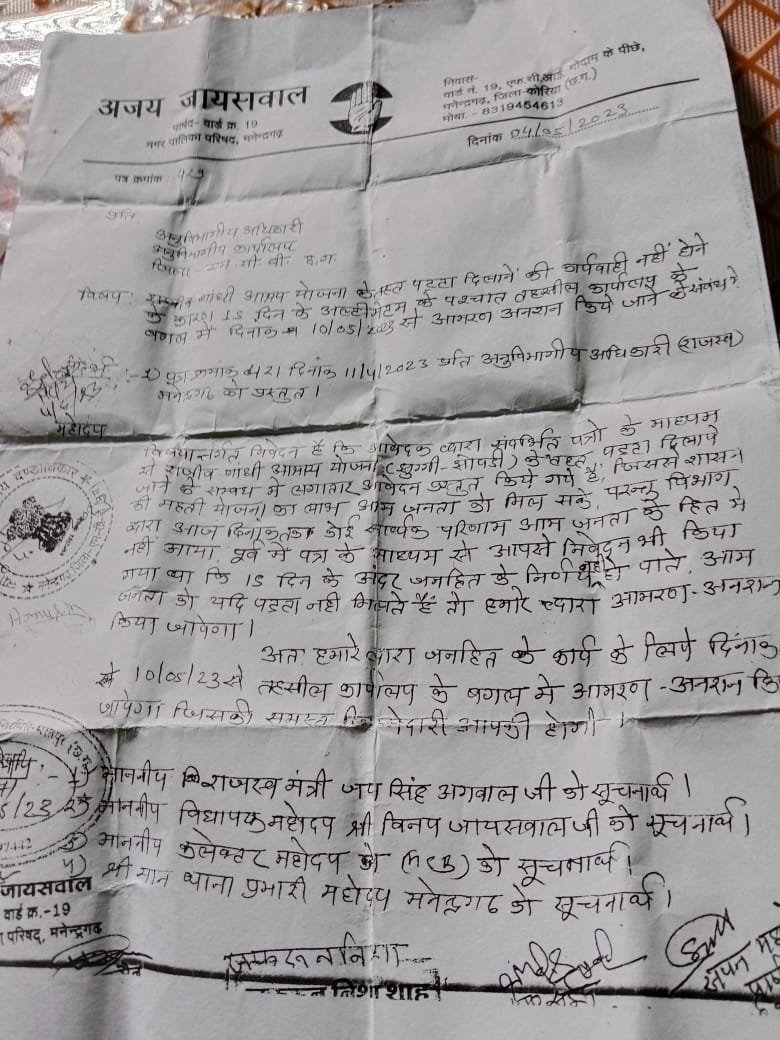 अजय जायसवाल
पार्षद- वार्ड क्र. 19
नगर पालिका परिषद, मनेन्द्रगढ़
निवास-
वार्ड नं. 19, एफ.सी.आई. गोदाम के पीछे,
मनेन्द्रगढ़, जिला-कोरिया (छ.ग.)
मोबा. - 8319454613
दिनांक 04/05/2023
पत्र क्रमांक
प्रति
अनुविभागीय अधिकारी
अनुविभागीय कार्यालय
जिला - एम. सी. बी. छ.ग.
विषय: राजीव गांधी आश्रय योजना के तहत पट्टा दिलाने की कार्यवाही नहीं होने
के कारण 15 दिन के अल्टीमेटम के पश्चात तहसील कार्यालय के
बगल में दिनांक 10/05/2023 से आमरण अनशन किये जाने के संबंध में
:-1) पत्र क्रमांक 421 दिनांक 11/4/2023 प्रति अनुविभागीय अधिकारी (राजस्व)
मनेन्द्रगढ़ को प्रस्तुत ।
महोदय
विषयान्तर्गत निवेदन है कि आवेदक द्वारा संदर्भित पत्रों के माध्यम
से राजीव गांधी आश्रय योजना (झुग्गी-झोपड़ी) के तहत पट्टा दिलाये
जाने के सम्बंध में लगातार आवेदन प्रस्तुत किये गये है, जिससे शासन
की महती योजना का लाभ आम जनता को मिल सके, परन्तु विभाग
द्वारा आज दिनांक तक कोई सार्थक परिणाम आम जनता के हित में
नहीं आया, पूर्व में पत्र के माध्यम से आपसे निवेदन भी किया
गया था कि 15 दिन के अंदर जनहित के निर्णय नही हो पाते, आम
जनता को यदि पट्टा नही मिलते हैं तो हमारे द्वारा आमरण-अनशन
किया जायेगा ।
अतः हमारे द्वारा जनहित के कार्य के लिये दिनांक
से 10/05/23 से तहसील कार्यालय के बगल में आमरण-अनशन कि
जायेगा जिसकी समस्त जिम्मेदारी आपकी होगी ।
माननीय राजस्व मंत्री जय सिंह अग्रवाल जी को सूचनार्थ ।
माननीय विधायक महोदय श्री विनय जायसवाल जी को सूचनार्थ ।
माननीय कलेक्टर महोदय को (MCB) को सूचनार्थ ।
श्री मान थाना प्रभारी महोदय मनेन्द्रगढ़ को सूचनार्थ ।
जायसवाल
वार्ड क्र.-19
परिषद, मनेन्द्रगढ़
निशा शाह